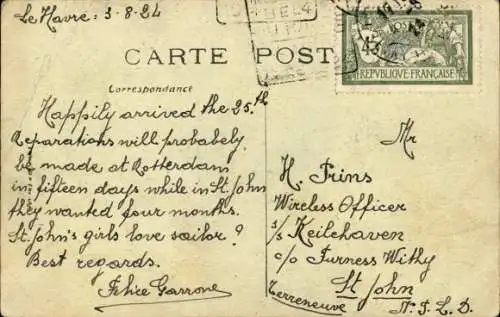 Le Havre: 3-8-24
CARTE POST
Correspondance
Happily arrived the 25.th
Reparations will probabely
be made at Rotterdam
in fifteen days while in St. John
they wanted four months.
St. John's girls love sailor?
Best regards.
Felice Garrone
REPVBLIQVE FRANÇAISE
Mr
H. Prins
Wireless Officer
s/s Keilehaven
c/o Furness Withy
St John
Terreneuve N.F.L.D.